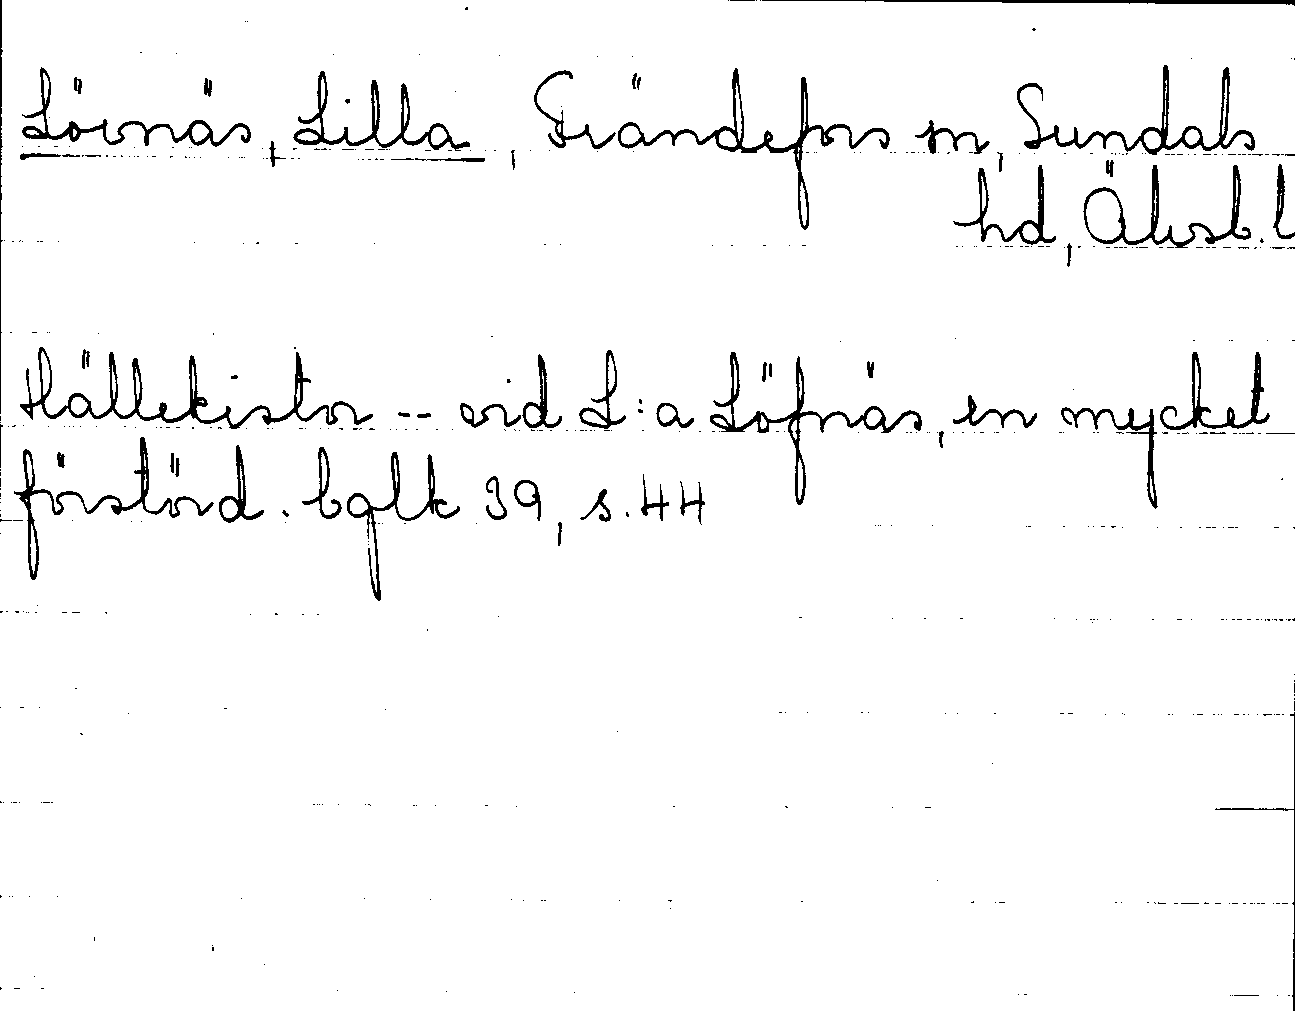 Lövnäs, Lilla, Frändefors sn, Sundals
hd, Älvsb. l
Hällekistor -- vid L:a Löfnäs, en mycket
förstörd. bglk 39, s. 44